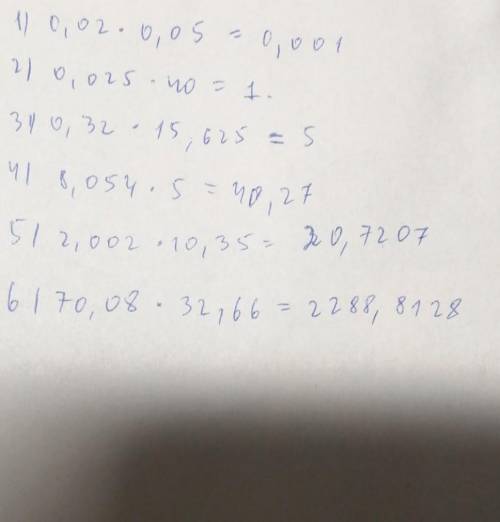 1) 0,02 · 0,05 = 0,001
2) 0,025 · 40 = 1.
3) 0,32 · 15,625 = 5
4) 8,054 · 5 = 40,27
5) 2,002 · 10,35 = 20,7207
6) 70,08 · 32,66 = 2288,8128